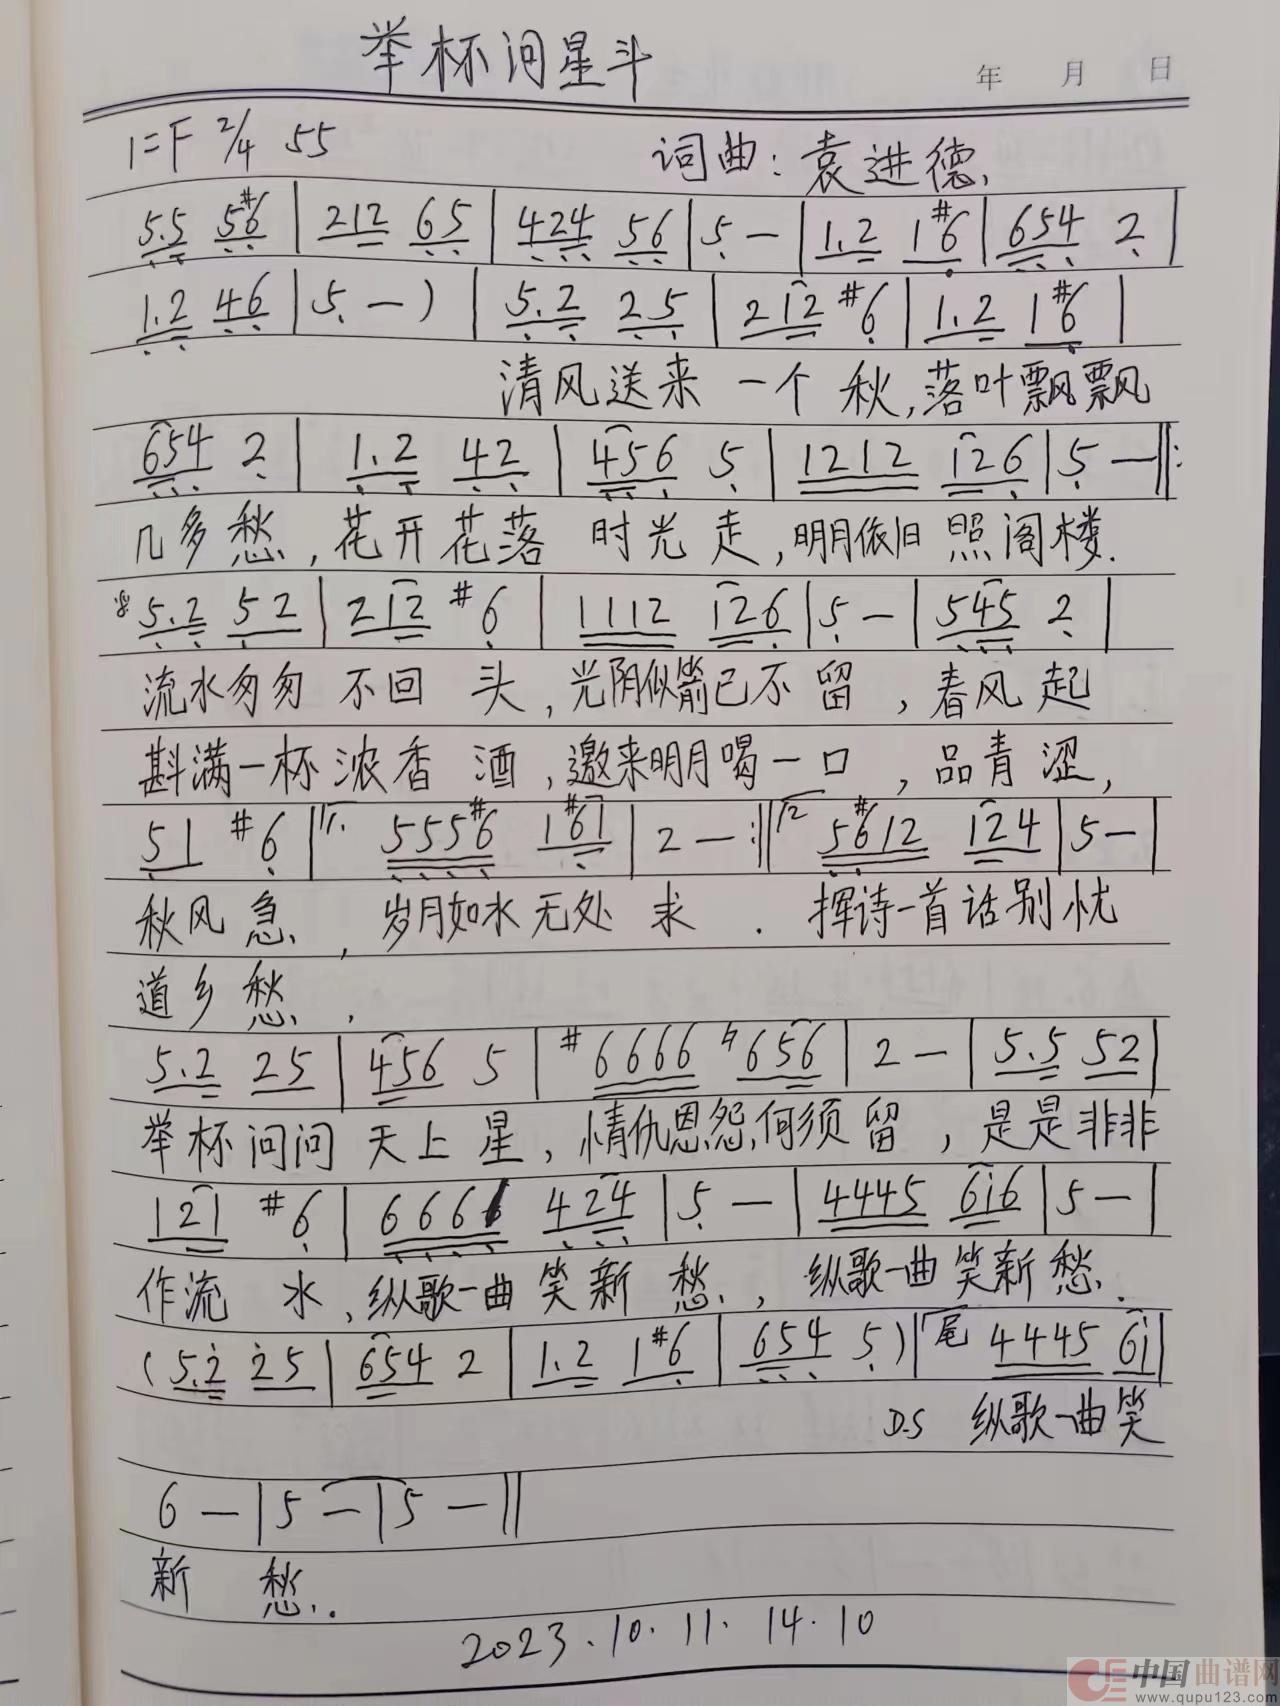 举杯问星斗
年 月 日
1=F 2/4 55
词曲：袁进德
5.5 5#6 | 212 65 | 424 56 | 5 — | 1.2 1#6 | 654 2 |
1.2 46 | 5 —) | 5.2 25 | 212 #6 | 1.2 1#6 |
清风送来 一个 秋,落叶飘飘
654 2 | 1.2 42 | 456 5 | 1212 126 | 5 — ‖:
几多愁,花开花落 时光走,明月依旧 照阁楼.
5.2 52 | 212 #6 | 1112 126 | 5 — | 545 2 |
流水匆匆 不回 头,光阴似箭已不留,春风起
斟满一杯浓香 酒,邀来明月喝一口,品青涩,
51 #6 | 1. 555#6 1#61 | 2 — :‖ 2 5#612 124 | 5 — |
秋风急,岁月如水无处 求. 挥诗一首话别忧
道乡愁.
5.2 25 | 456 5 | #6666 ♮656 | 2 — | 5.5 52 |
举杯问问 天上星,情仇恩怨何须留,是是非非
121 #6 | 6666 424 | 5 — | 4445 6i6 | 5 — |
作流 水,纵歌一曲笑新 愁,纵歌一曲笑新愁.
(5.2 25 | 654 2 | 1.2 1#6 | 654 5) | 尾 4445 6i |
D.S 纵歌一曲笑
6 — | 5 — | 5 — ‖
新 愁.
2023.10.11.14.10
中国曲谱网
www.qupu123.com